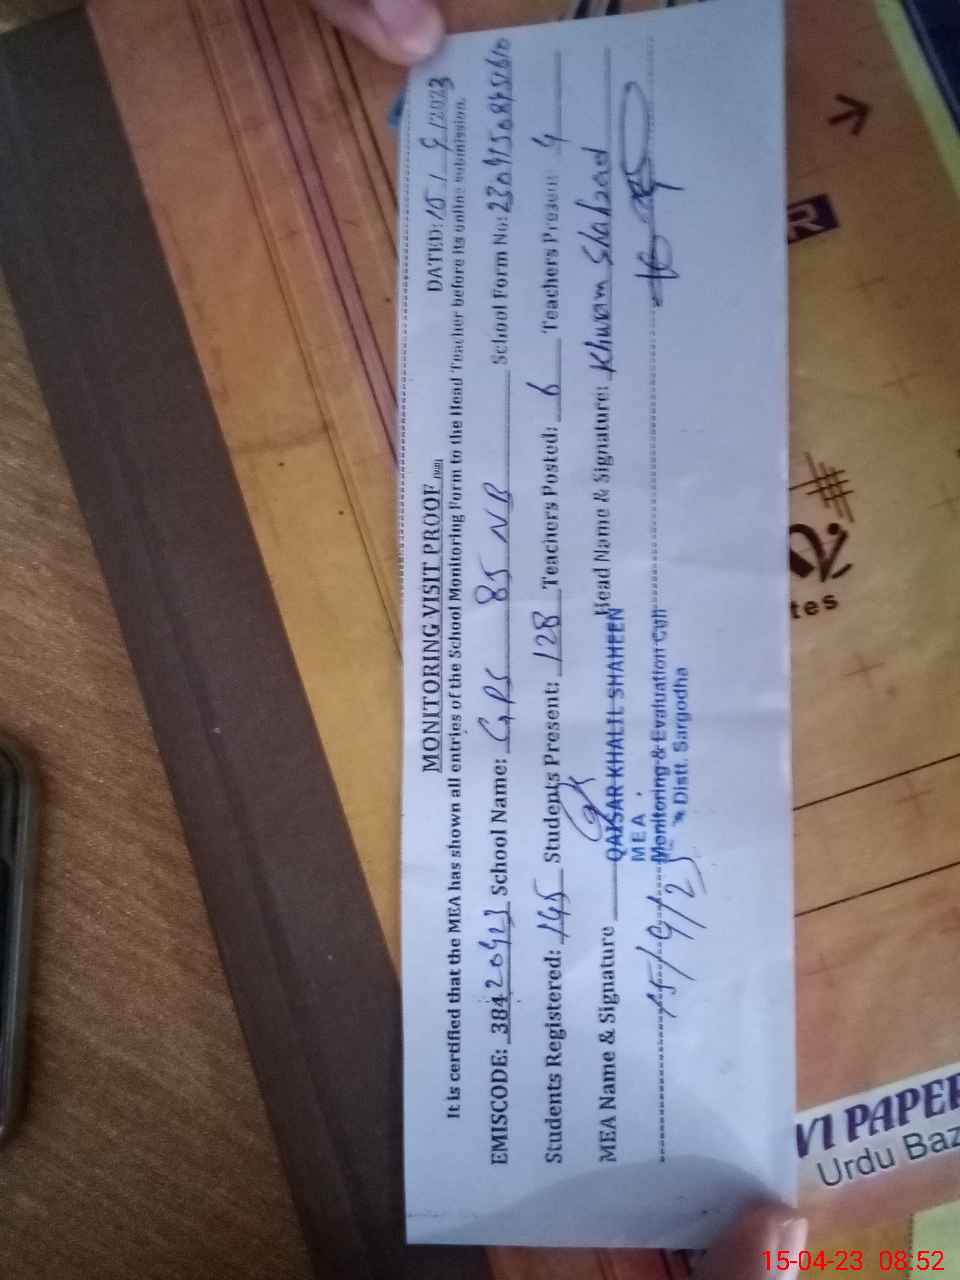 MONITORING VISIT PROOF
DATED: 15 / 9 /2023
It is certified that the MEA has shown all entries of the School Monitoring Form to the Head Teacher before its online submission.
EMISCODE: 38420423 School Name: GPS 85 NB School Form No:
Students Registered: 145 Students Present: 128 Teachers Posted: 6 Teachers Present: 4
MEA Name & Signature Head Name & Signature: Khuram Shahzad
QAISAR KHALIL SHAHEEN
MEA
Monitoring & Evaluation Cell
Distt. Sargodha
15/9/23
R
tes
VI PAPER
Urdu Baz
15-04-23 08:52